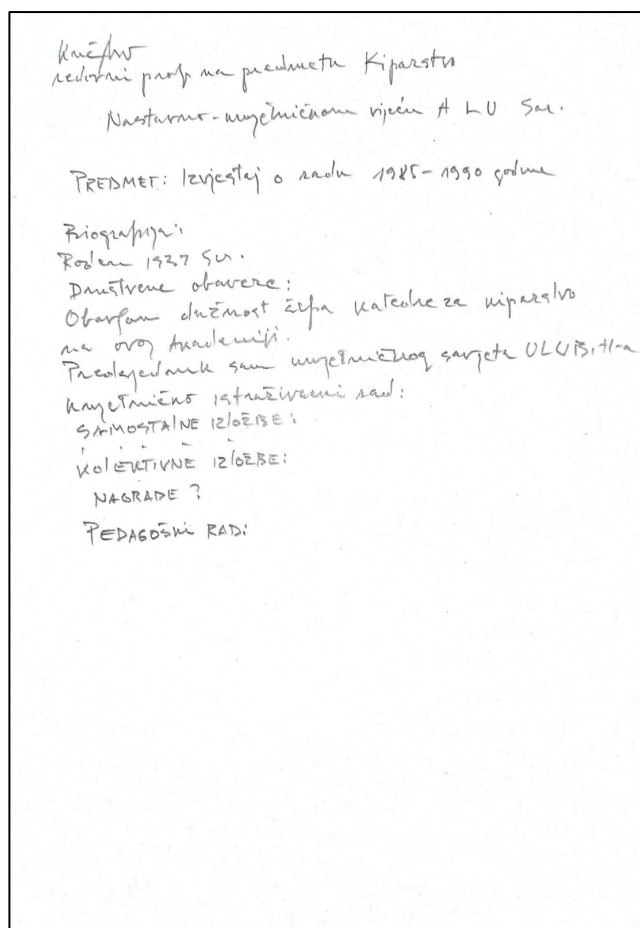 redovni prof. na predmetu Kiparstvo
Nastavno-umjetničkom vijeću ALU Sar.
PREDMET: Izvještaj o radu 1985-1990 godine
Biografija:
Rođen 1937 Sar.
Društvene obaveze:
Obavljam dužnost šefa katedre za kiparstvo
na ovoj Akademiji.
Predsjednik sam umjetničkog savjeta ULUBiH-a
Umjetničko istraživački rad:
SAMOSTALNE IZLOŽBE:
KOLEKTIVNE IZLOŽBE:
NAGRADE ?
PEDAGOŠKI RAD: